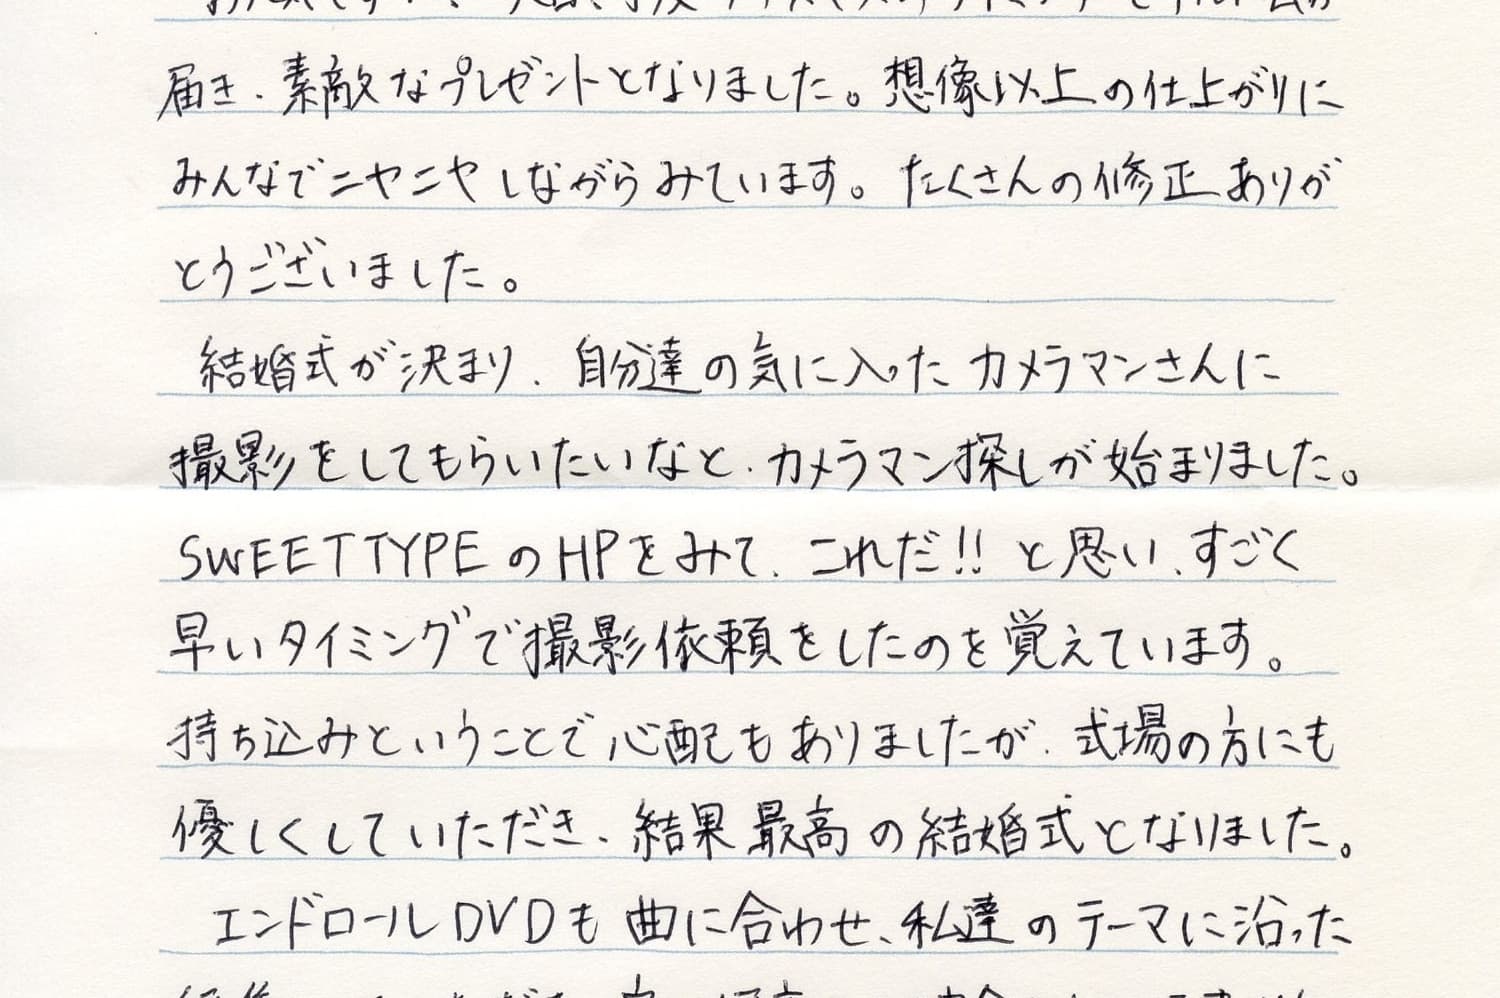 届き、素敵なプレゼントとなりました。想像以上の仕上がりに
みんなでニヤニヤしながらみています。たくさんの修正ありが
とうございました。
結婚式が決まり、自分達の気に入ったカメラマンさんに
撮影をしてもらいたいなと、カメラマン探しが始まりました。
SWEETTYPEのHPをみて、これだ!!と思い、すごく
早いタイミングで撮影依頼をしたのを覚えています。
持ち込みということで心配もありましたが、式場の方にも
優しくしていただき、結果最高の結婚式となりました。
エンドロールDVDも曲に合わせ、私達のテーマに沿った